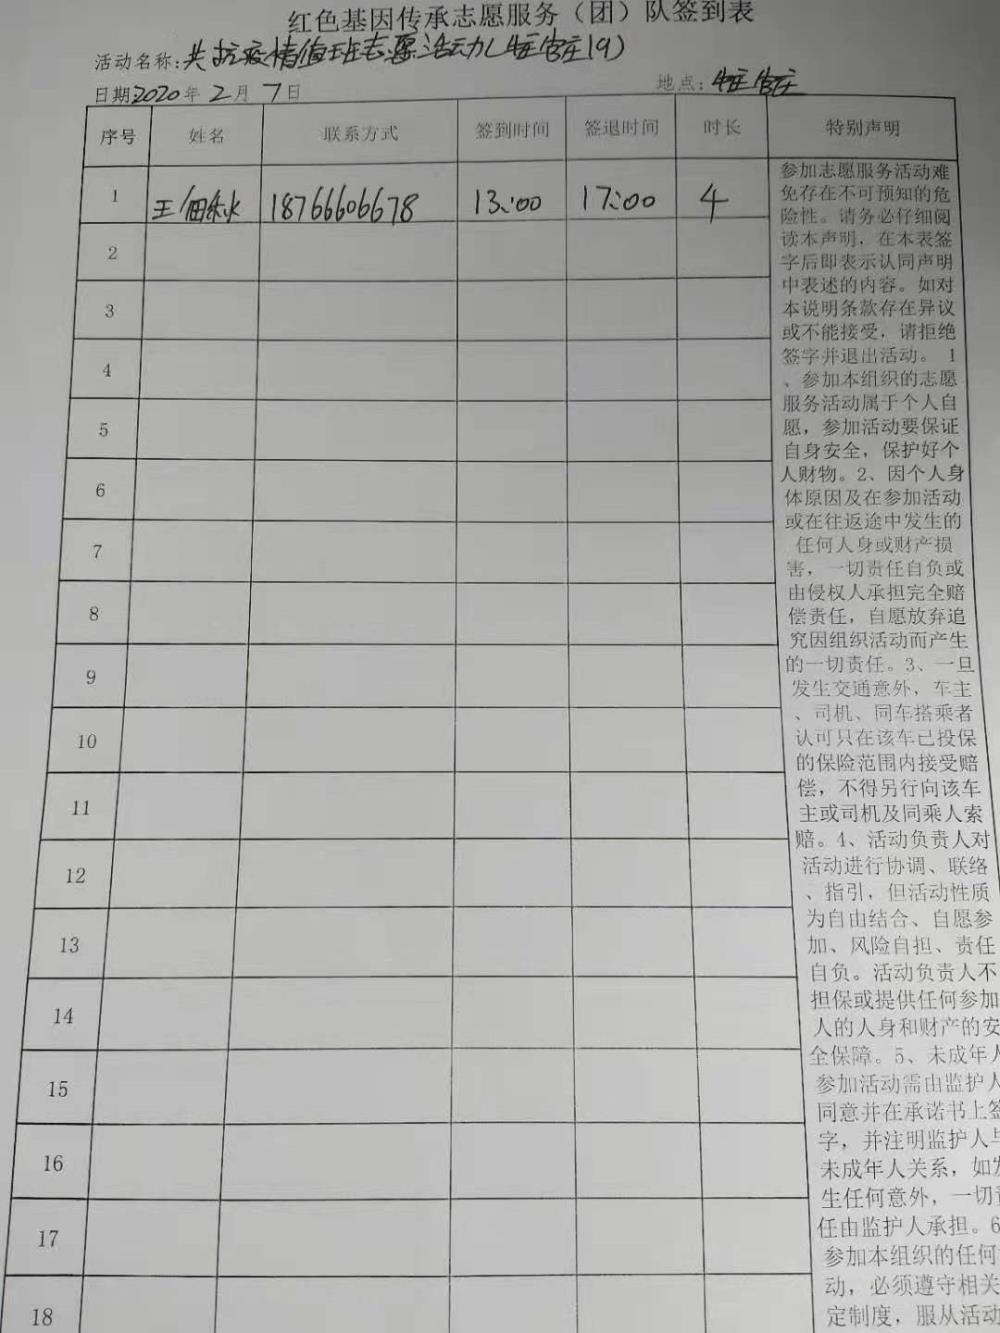 红色基因传承志愿服务（团）队签到表
活动名称:共抗疫情值班志愿活动(牛王官庄(9)
日期2020年2月7日 地点:牛王官庄
序号 姓名 联系方式 签到时间 签退时间 时长 特别声明
1 王 18766606678 13:00 17:00 4
2
3
4
5
6
7
8
9
10
11
12
13
14
15
16
17
18
参加志愿服务活动难
免存在不可预知的危
险性。请务必仔细阅
读本声明，在本表签
字后即表示认同声明
中表述的内容。如对
本说明条款存在异议
或不能接受，请拒绝
签字并退出活动。 1
、参加本组织的志愿
服务活动属于个人自
愿，参加活动要保证
自身安全，保护好个
人财物。2、因个人身
体原因及在参加活动
或在往返途中发生的
任何人身或财产损
害，一切责任自负或
由侵权人承担完全赔
偿责任，自愿放弃追
究因组织活动而产生
的一切责任。3、一旦
发生交通意外，车主
、司机、同车搭乘者
认可只在该车已投保
的保险范围内接受赔
偿，不得另行向该车
主或司机及同乘人索
赔。4、活动负责人对
活动进行协调、联络
、指引，但活动性质
为自由结合、自愿参
加、风险自担、责任
自负。活动负责人不
担保或提供任何参加
人的人身和财产的安
全保障。5、未成年人
参加活动需由监护人
同意并在承诺书上签
字，并注明监护人与
未成年人关系，如发
生任何意外，一切责
任由监护人承担。6
参加本组织的任何
动，必须遵守相关
定制度，服从活动